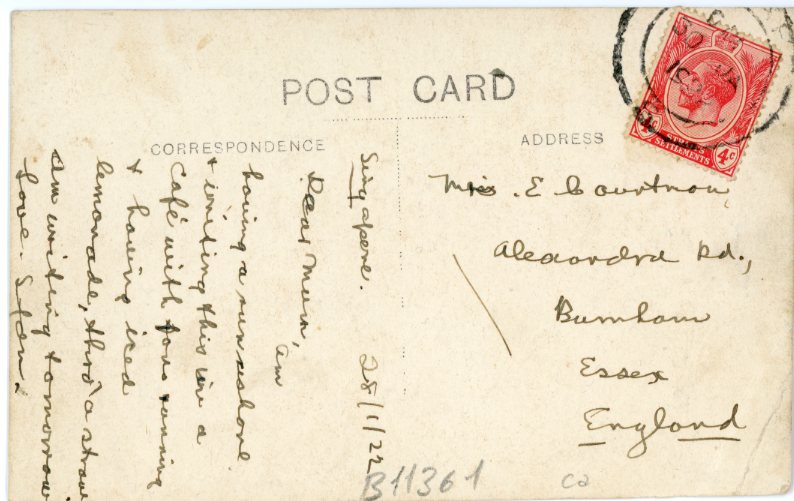 POST CARD
CORRESPONDENCE
ADDRESS
Singapore. 28/1/22
Dear Mum, am
having a run ashore
& writing this in a
Café with fans running
& having iced
lemonade, thro' a straw
am writing tomorrow
Love. Stan.
Mrs. E Courtnou
Alexandra Rd.,
Burnham
Essex
England
STRAITS
SETTLEMENTS
4c 4c
B11361
ca